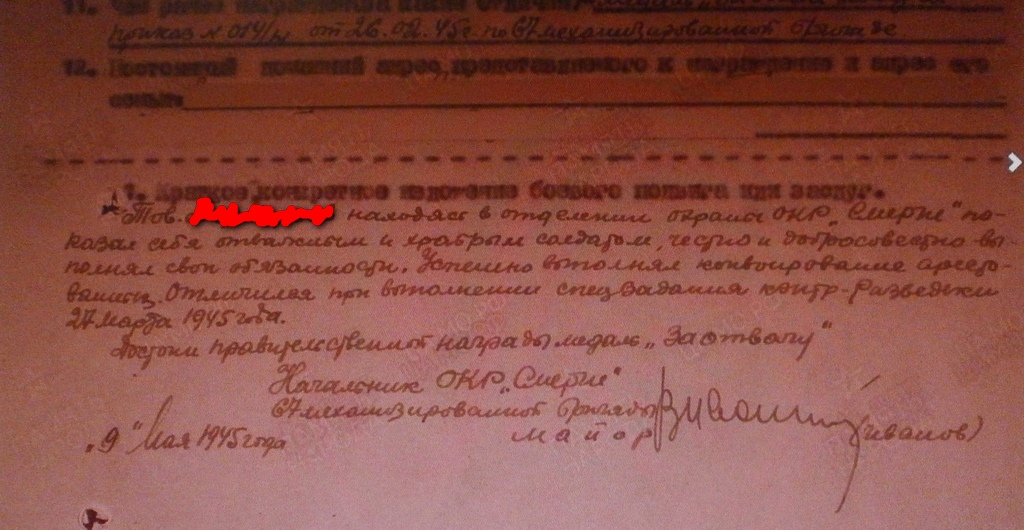 11. Чем ранее награжден
приказ № 014/н от 26.02.45г. по 67 механизированной бригаде
12. Постоянный домашний адрес представляемого к награждению и адрес его
семьи
1. Краткое конкретное изложение боевого подвига или заслуг.
Тов. находясь в отделении охраны ОКР "Смерш" по-
казал себя отважным и храбрым солдатом, честно и добросовестно вы-
полнял свои обязанности. Успешно выполнял конвоирование аресто-
ванных. Отличился при выполнении спец задания контр-разведки
27 марта 1945 года.
Достоин правительственной награды медаль „За отвагу"
Начальник ОКР „Смерш"
67 механизированной бригады
майор (Иванов)
„9" Мая 1945 года